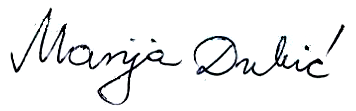 Marija Dubić